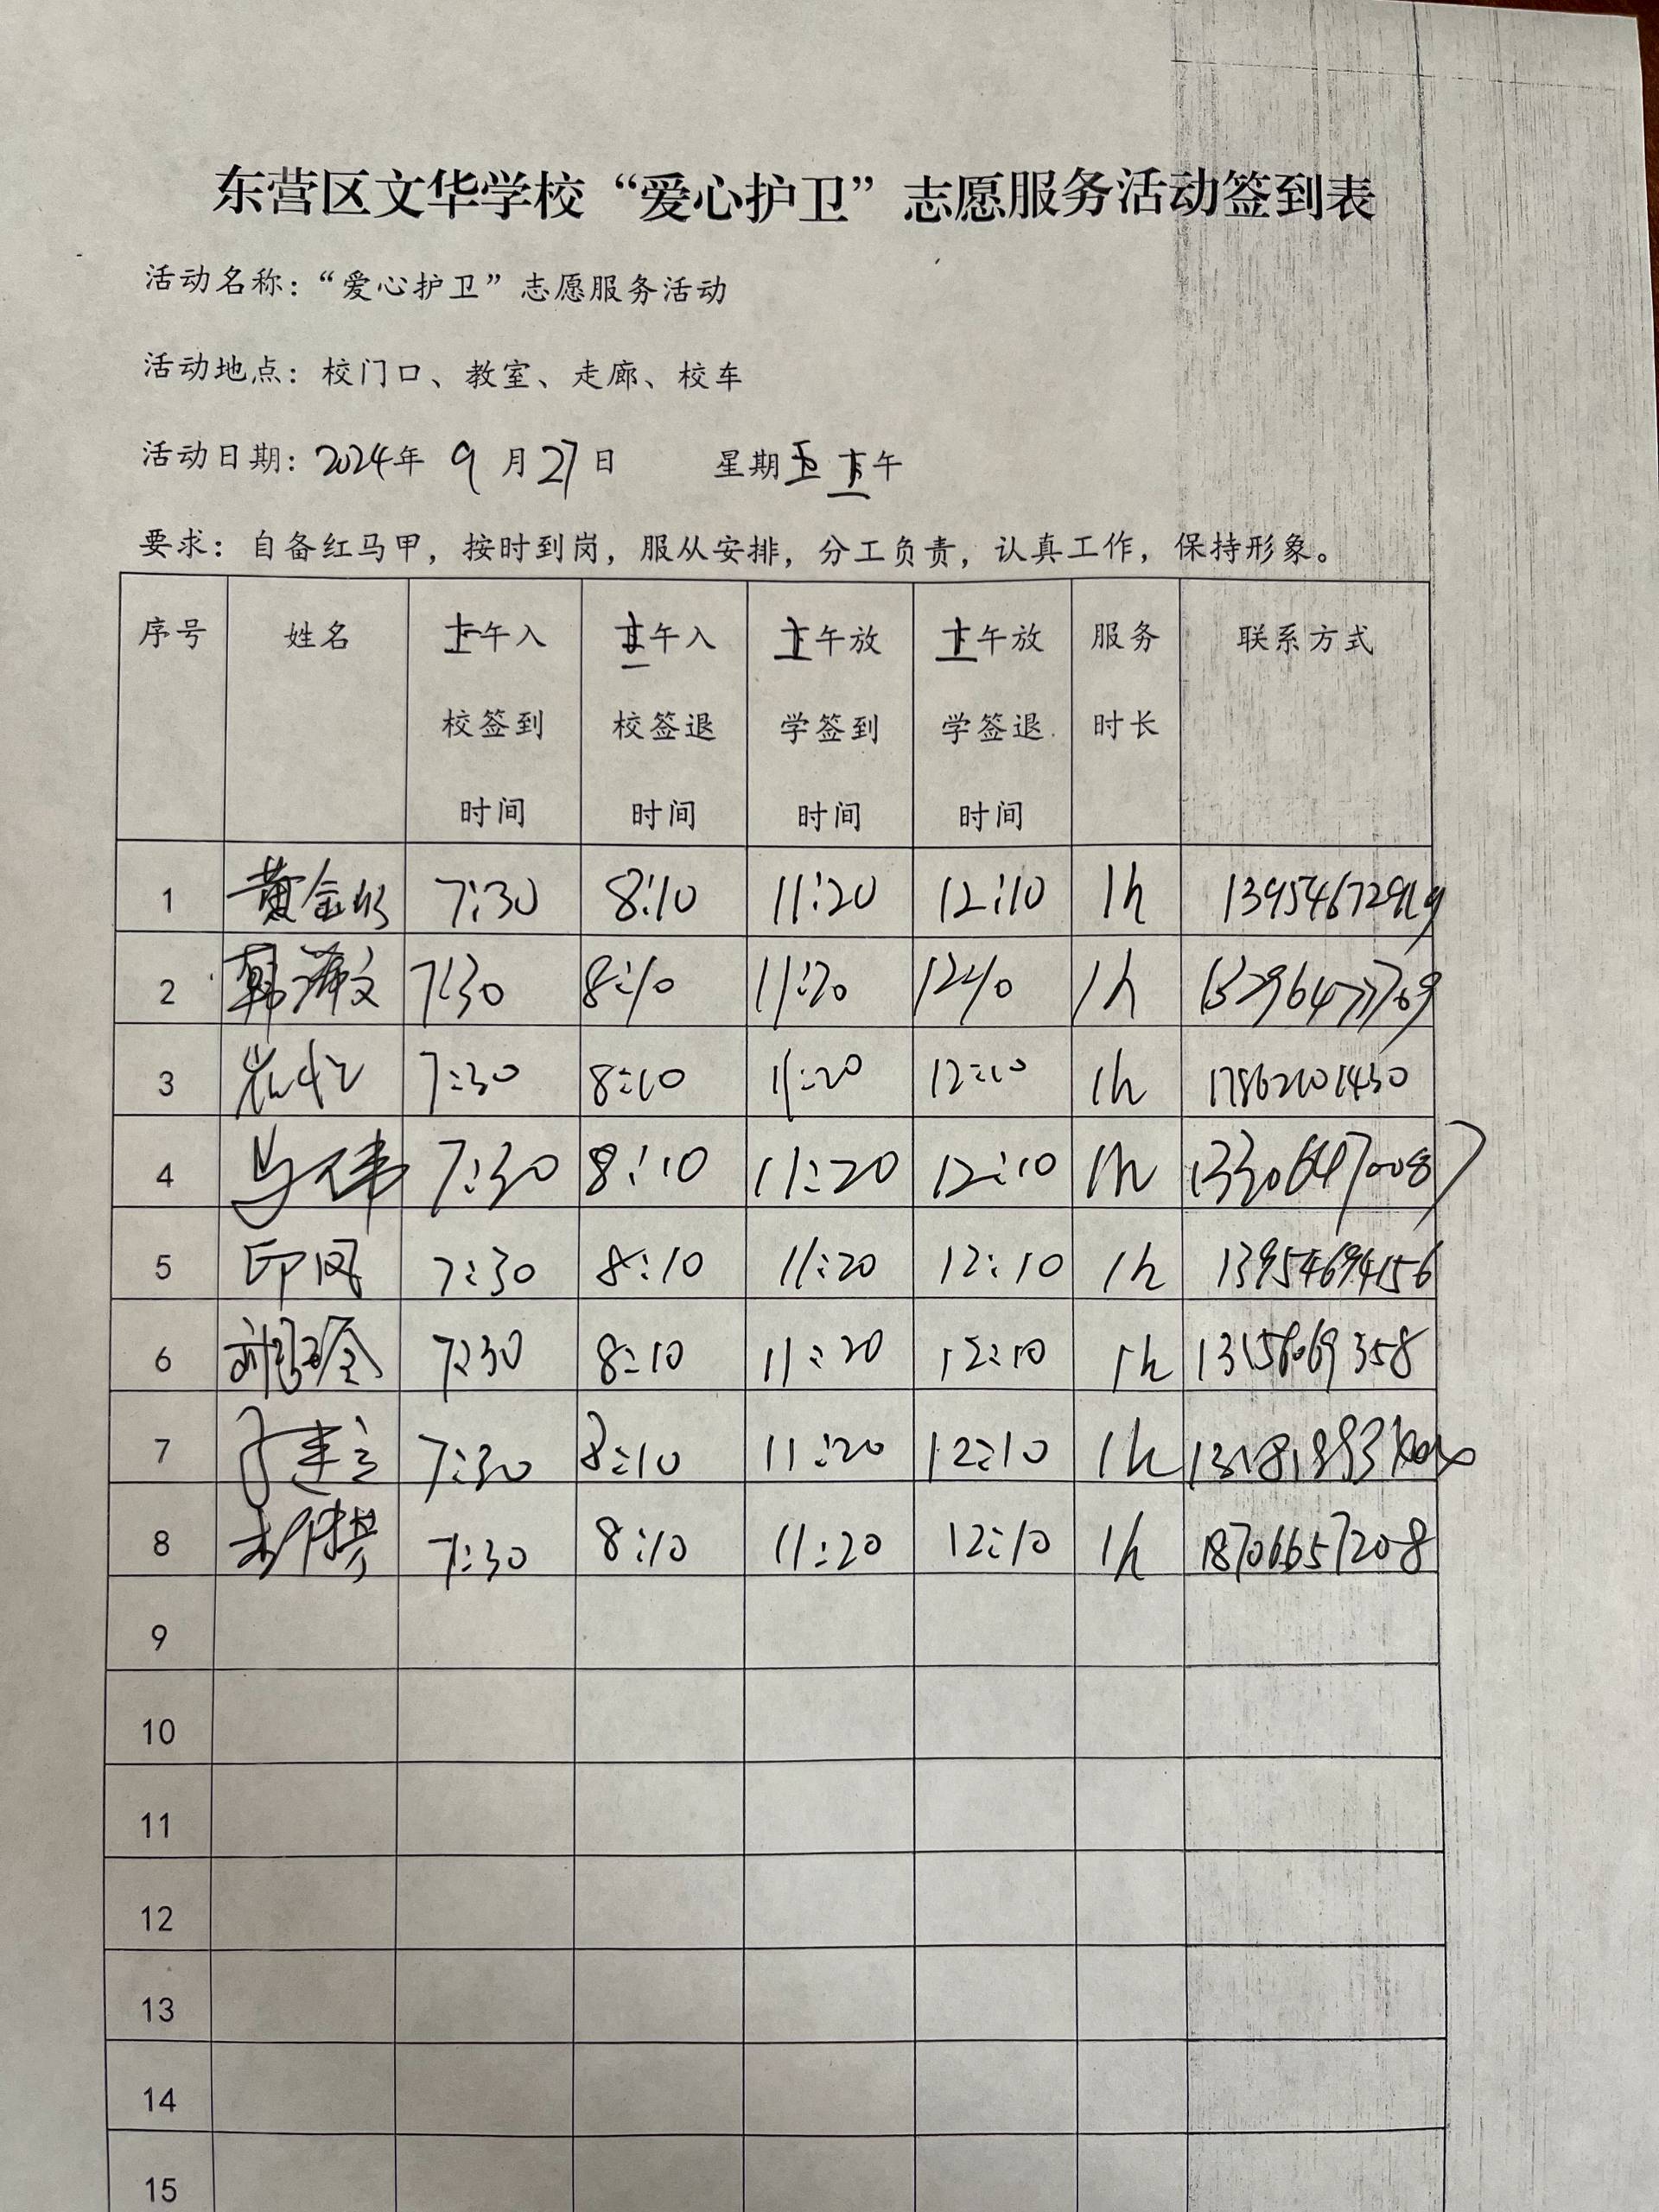 东营区文华学校“爱心护卫”志愿服务活动签到表
活动名称：“爱心护卫”志愿服务活动
活动地点：校门口、教室、走廊、校车
活动日期：2024年 9 月 27 日 星期五 上午
要求：自备红马甲，按时到岗，服从安排，分工负责，认真工作，保持形象。
序号 姓名 上午入校签到时间 上午入校签退时间 上午放学签到时间 上午放学签退时间 服务时长 联系方式
1 7:30 8:10 11:20 12:10 1h
2 7:30 8:10 11:20 12:10 1h
3 7:30 8:10 11:20 12:10 1h
4 7:30 8:10 11:20 12:10 1h
5 印凤 7:30 8:10 11:20 12:10 1h 13954694156
6 7:30 8:10 11:20 12:10 1h
7 7:30 8:10 11:20 12:10 1h
8 7:30 8:10 11:20 12:10 1h 18706657208
9
10
11
12
13
14
15